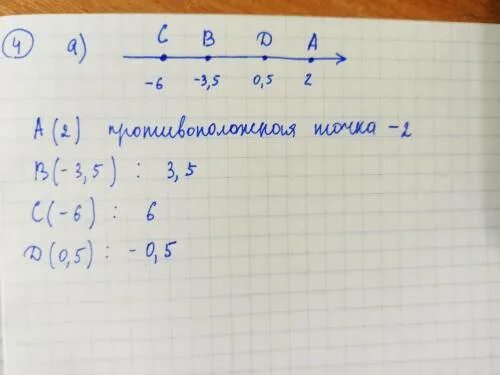 4 а)
C B D A
-6 -3,5 0,5 2
A(2) противоположная точка -2
B(-3,5) : 3,5
C(-6) : 6
D(0,5) : -0,5